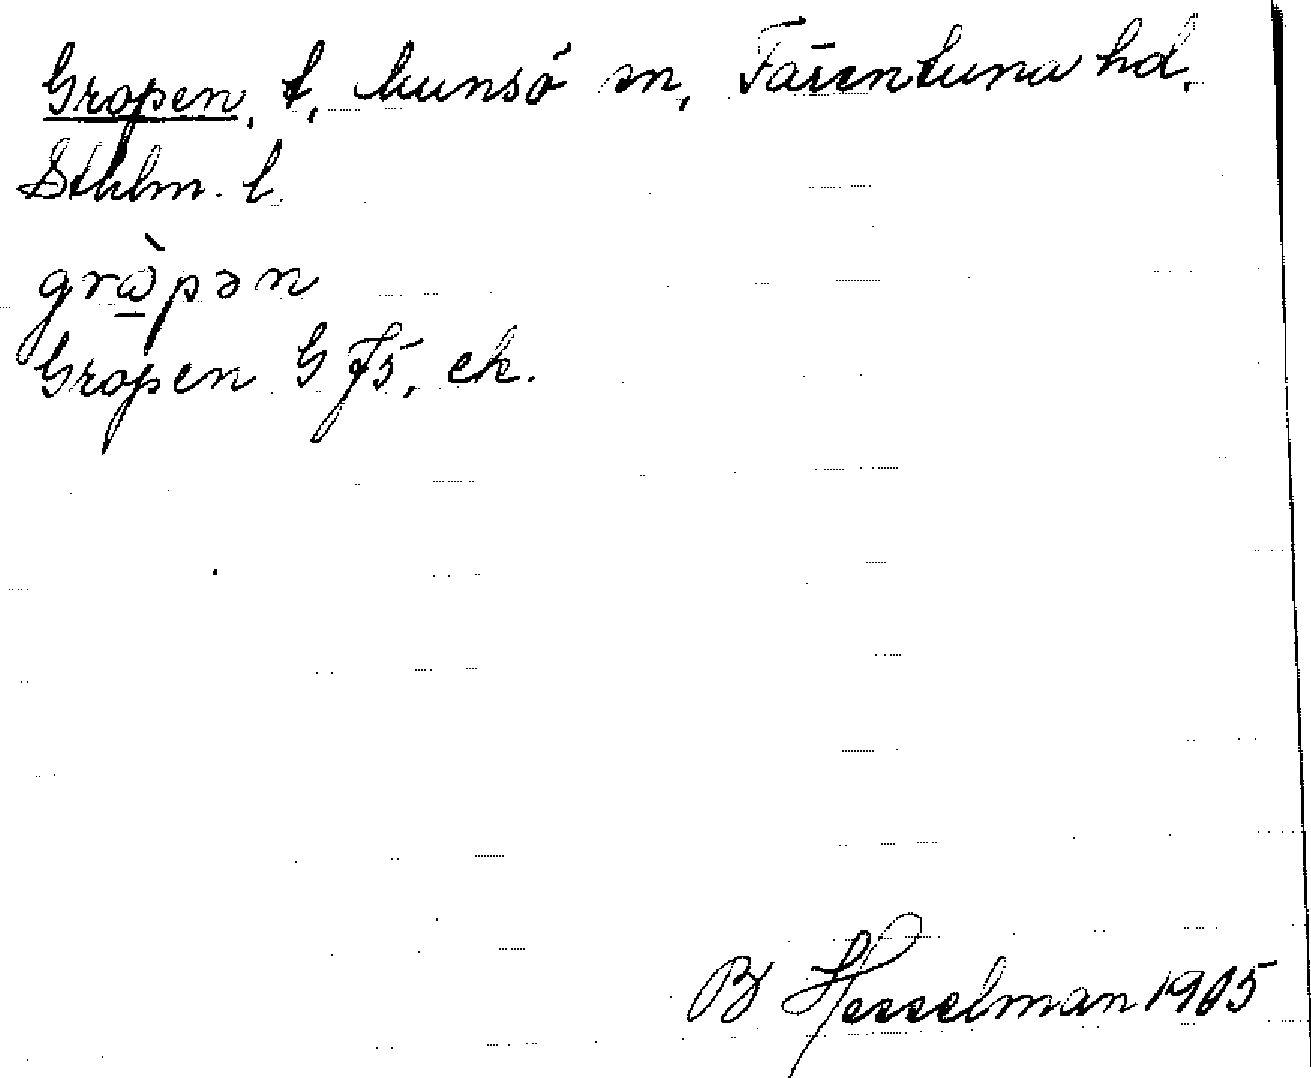 Gropen, t, Munsö sn, Färentuna hd,
Sthlm. l.
grɷ̀pən
Gropen G J5, ek.
B Hesselman 1905